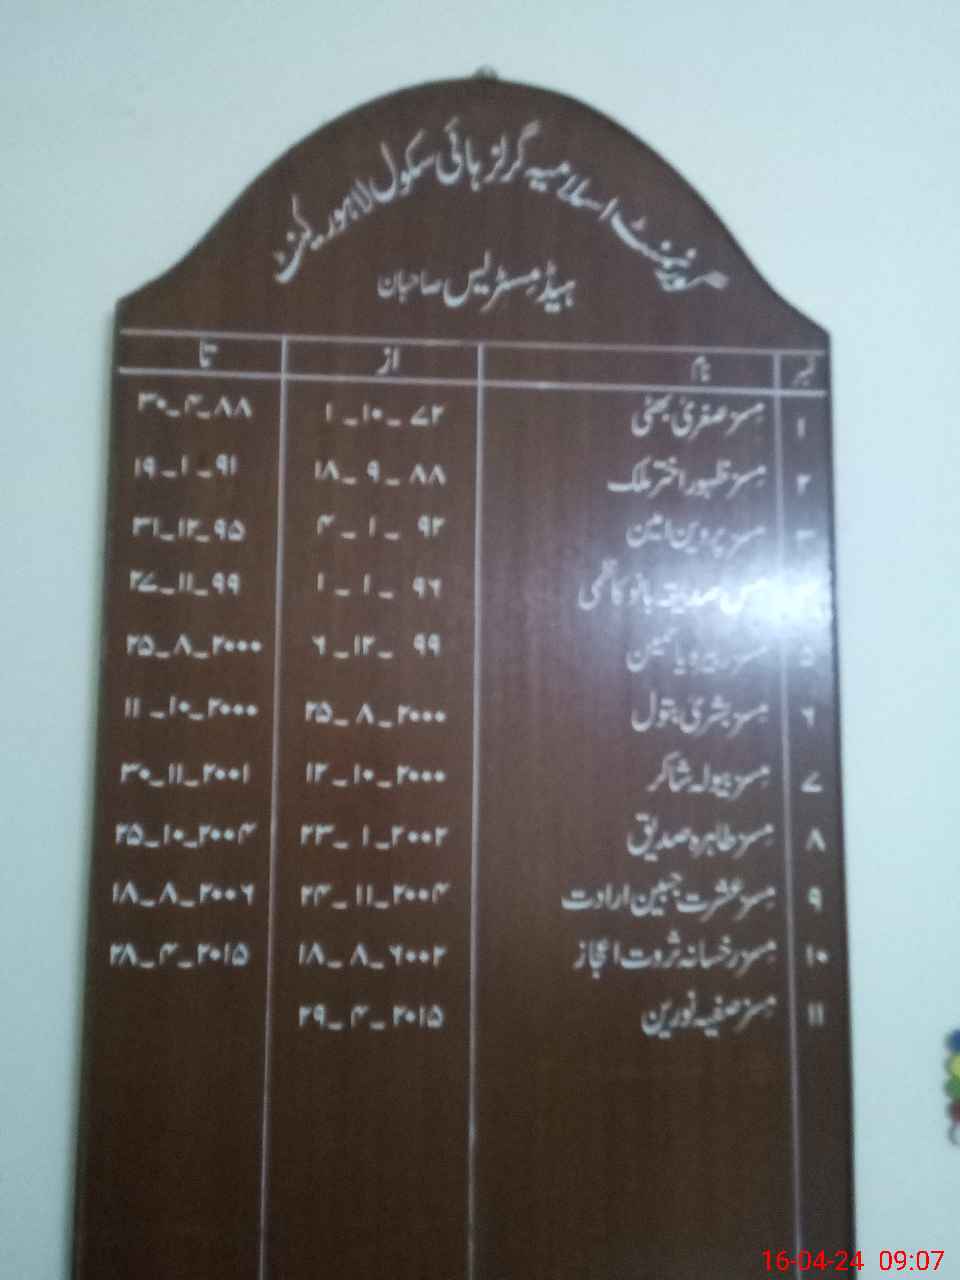 گورنمنٹ اسلامیہ گرلز ہائی سکول لاہور کینٹ
ہیڈ مسٹریس صاحبان
نمبر نام از تا
۱ مسز صغریٰ بھٹی ۱-۱۰-۷۲ ۳۰-۴-۸۸
۲ مسز ظہور اختر ملک ۱۸-۹-۸۸ ۱۹-۱-۹۱
۳ مسز پروین امین ۴-۱-۹۲ ۳۱-۱۲-۹۵
۴ مس صدیقہ بانو کاظمی ۱-۱-۹۶ ۲۷-۱۱-۹۹
۵ مسز یاسمین ۶-۱۲-۹۹ ۲۵-۸-۲۰۰۰
۶ مسز بشریٰ بتول ۲۵-۸-۲۰۰۰ ۱۱-۱۰-۲۰۰۰
۷ مسز بیولہ شاکر ۱۲-۱۰-۲۰۰۰ ۳۰-۱۱-۲۰۰۱
۸ مسز طاہرہ صدیق ۲۳-۱-۲۰۰۲ ۲۵-۱۰-۲۰۰۴
۹ مسز عشرت جبین ارادت ۲۴-۱۱-۲۰۰۴ ۱۸-۸-۲۰۰۶
۱۰ مسز رخسانہ ثروت اعجاز ۱۸-۸-۶۰۰۲ ۲۸-۴-۲۰۱۵
۱۱ مسز صفیہ نورین ۲۹-۴-۲۰۱۵
16-04-24 09:07